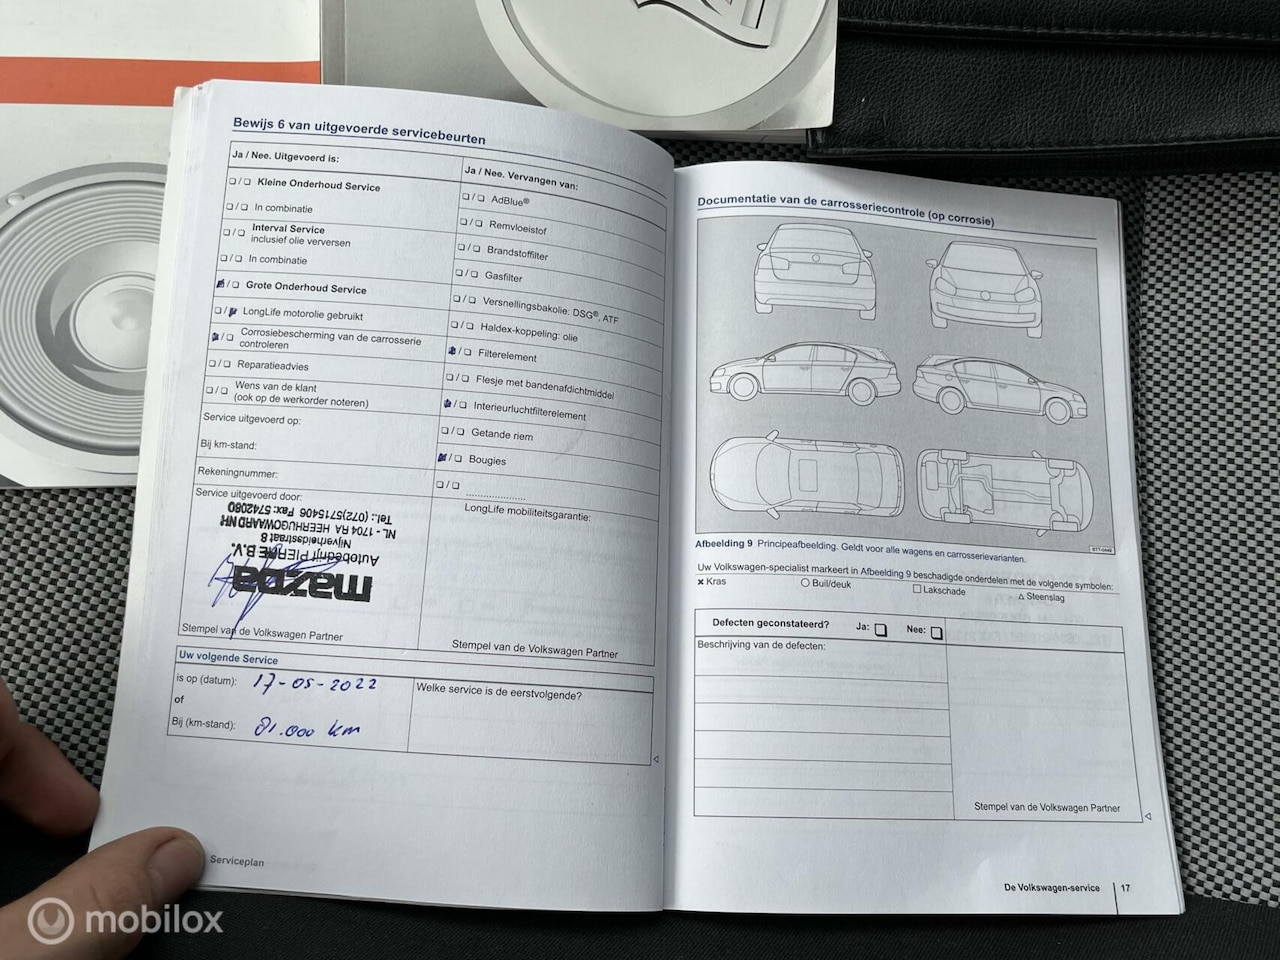 Bewijs 6 van uitgevoerde servicebeurten
Ja / Nee. Uitgevoerd is:
Kleine Onderhoud Service
In combinatie
Interval Service
inclusief olie verversen
In combinatie
Grote Onderhoud Service
LongLife motorolie gebruikt
Corrosiebescherming van de carrosserie
controleren
Reparatieadvies
Wens van de klant
(ook op de werkorder noteren)
Service uitgevoerd op:
Bij km-stand:
Rekeningnummer:
Service uitgevoerd door:
mazda
Autobedrijf PIERRE B.V.
Nijverheidsstraat 8
NL - 1704 RA HEERHUGOWAARD NH
Tel.: (072)5715406 Fax: 5742080
Stempel van de Volkswagen Partner
Ja / Nee. Vervangen van:
AdBlue®
Remvloeistof
Brandstoffilter
Gasfilter
Versnellingsbakolie: DSG®, ATF
Haldex-koppeling: olie
Filterelement
Flesje met bandenafdichtmiddel
Interieurluchtfilterelement
Getande riem
Bougies
LongLife mobiliteitsgarantie:
Stempel van de Volkswagen Partner
Uw volgende Service
is op (datum): 17-05-2022
of
Bij (km-stand): 81.000 km
Welke service is de eerstvolgende?
Serviceplan
Documentatie van de carrosseriecontrole (op corrosie)
Afbeelding 9 Principeafbeelding. Geldt voor alle wagens en carrosserievarianten.
Uw Volkswagen-specialist markeert in Afbeelding 9 beschadigde onderdelen met de volgende symbolen:
× Kras ○ Buil/deuk □ Lakschade △ Steenslag
Defecten geconstateerd? Ja: Nee:
Beschrijving van de defecten:
Stempel van de Volkswagen Partner
De Volkswagen-service 17
mobilox